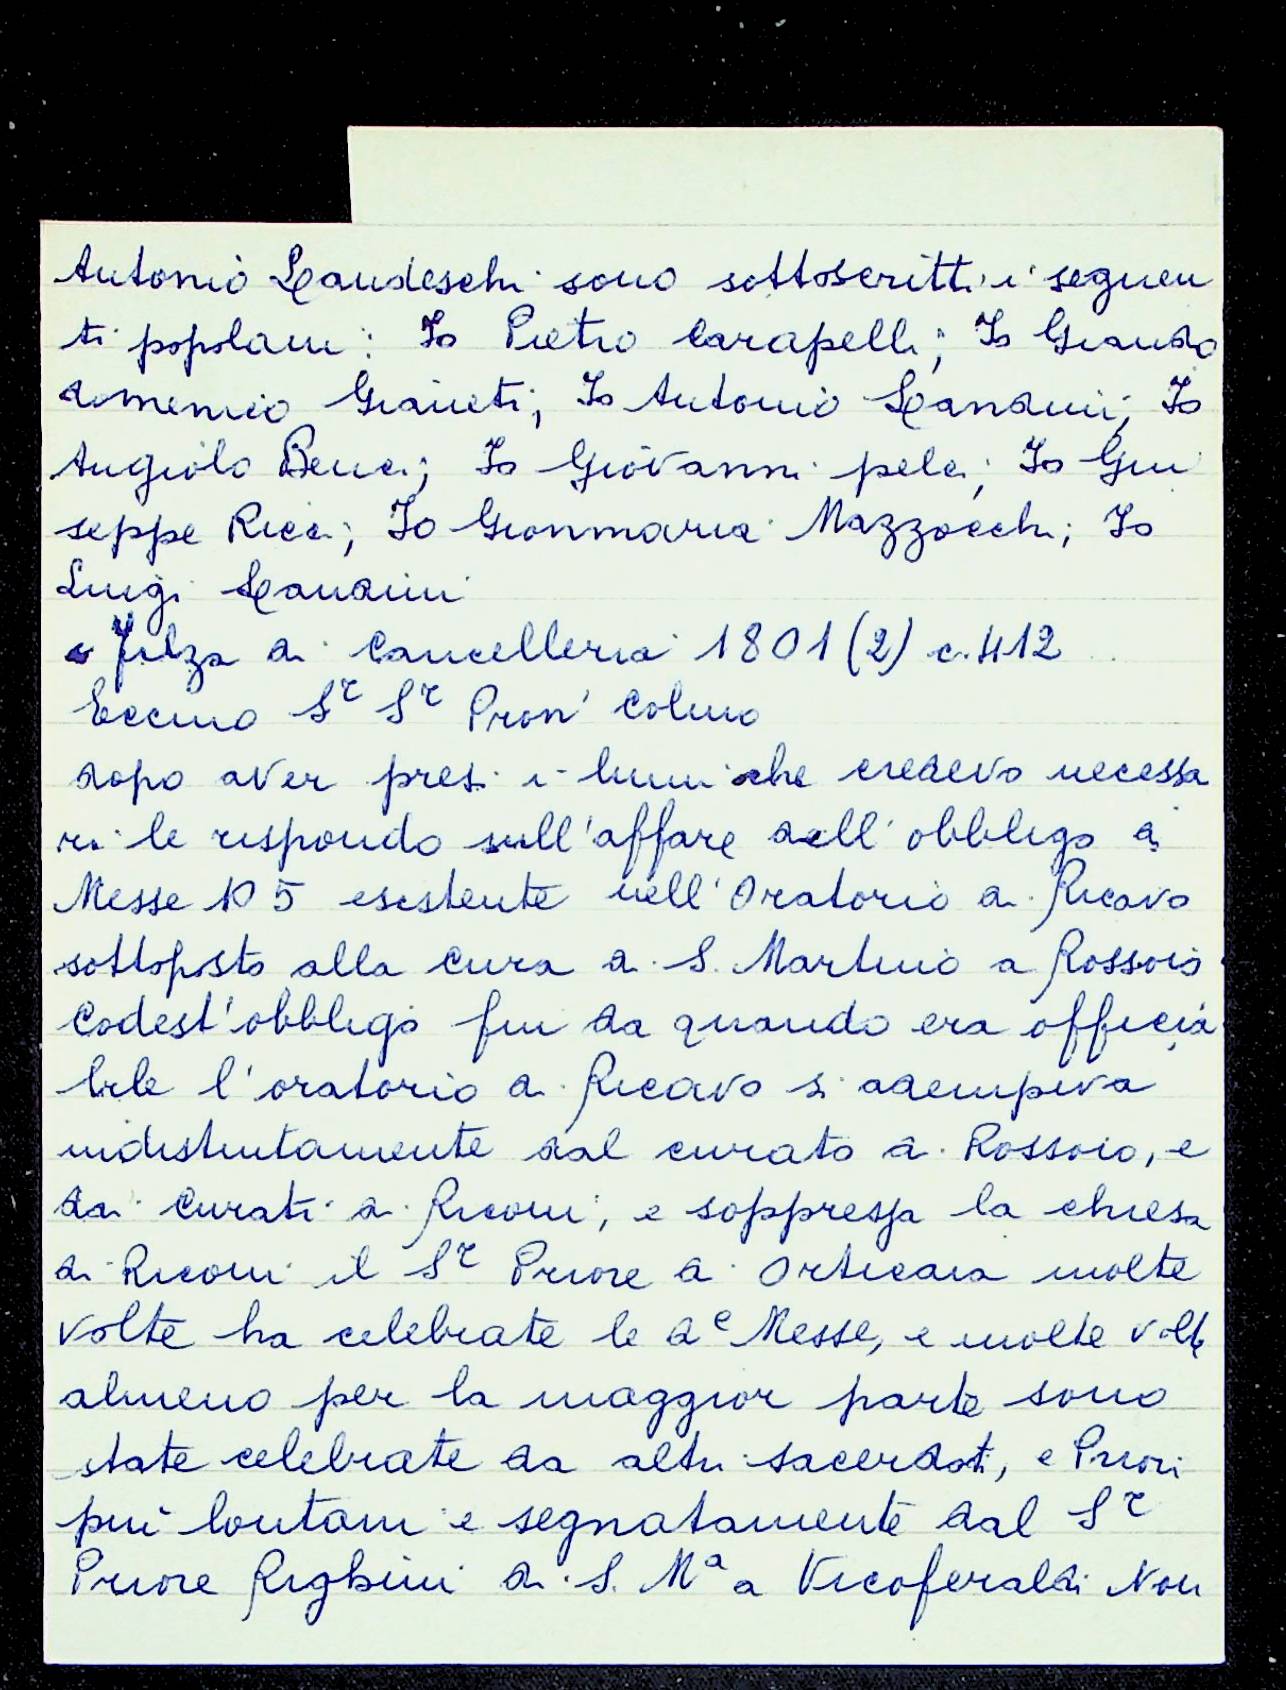 Antonio Landeschi sono sottoscritti i seguen
ti popolani: Io Pietro Carapelli; Io Giando
domenico Gianeti; Io Antonio Landini; Io
Angiolo Benci; Io Giovanni pelei; Io Giu
seppe Ricci; Io Gionmaria Mazzocchi; Io
Luigi Landini
Filza di Cancelleria 1801 (2) c. 412
Eccmo Sr Sr Pron' Colmo
dopo aver presi i lumi che credevo necessa
ri le rispondo sull'affare dell'obbligo di
Messe N° 5 esistente nell'Oratorio di Ricavo
sottoposto alla cura di S. Martino a Rossoio
Codest'obbligo fin da quando era officia
bile l'oratorio di Ricavo si adempiva
indistintamente dal curato di Rossoio, e
dai Curati di Ricovi, e soppressa la chiesa
di Ricovi il Sr Priore di Orticaia molte
volte ha celebrate le de Messe, e molte volte
almeno per la maggior parte sono
state celebrate da altri sacerdoti, e Priori
piu lontani e segnatamente dal Sr
Priore Righini di S. Ma a Vicoferaldi Non